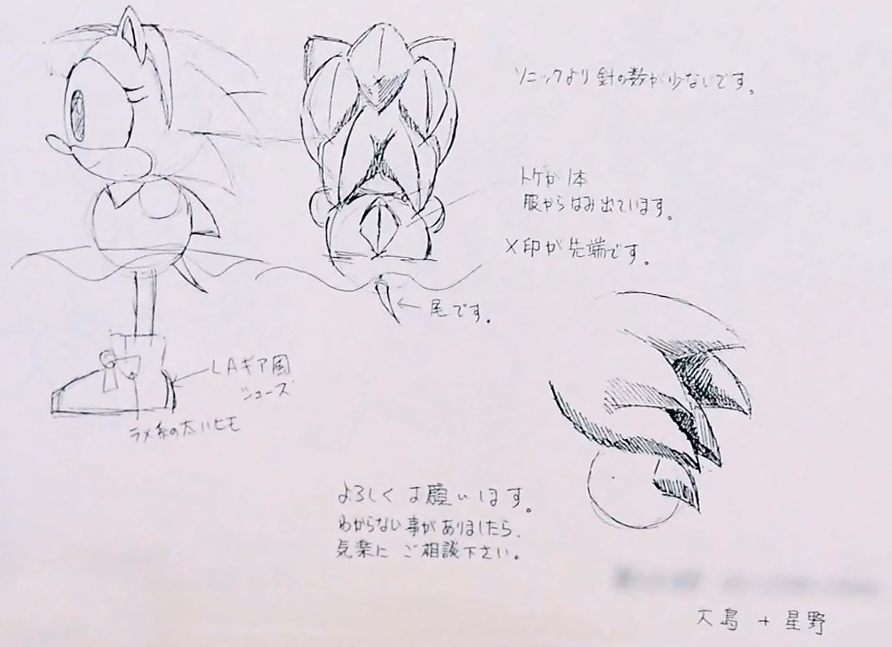 ソニックより針の数が少ないです。
トゲが1本
服からはみ出ています。
×印が先端です。
尾です。
LAギア風
シューズ
ラメ糸の太いヒモ
よろしくお願いします。
わからない事がありましたら、
気楽にご相談下さい。
大島 + 星野